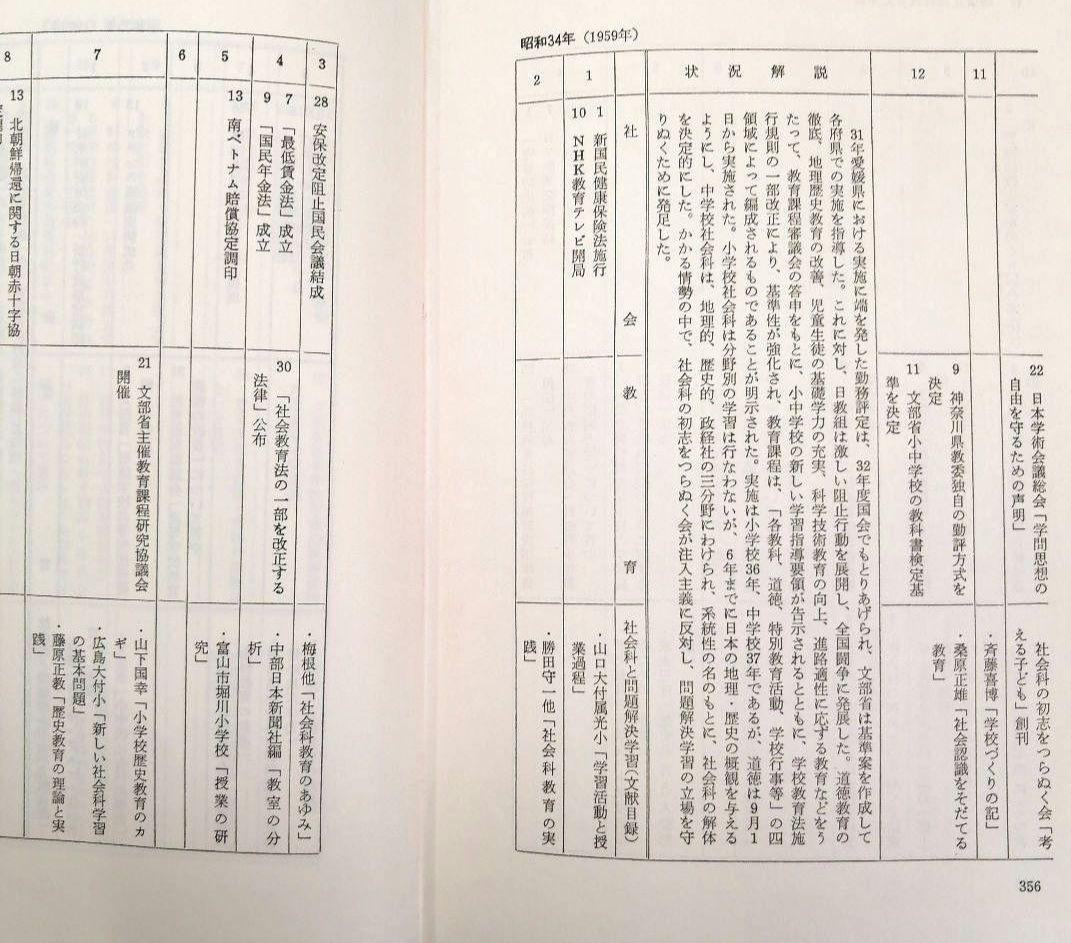 22 日本学術会議総会「学問思想の
自由を守るための声明」
社会科の初志をつらぬく会「考
える子ども」創刊
11
・斉藤喜博「学校づくりの記」
12
9 神奈川県教委独自の勤評方式を
決定
11 文部省小中学校の教科書検定基
準を決定
・桑原正雄「社会認識をそだてる
教育」
昭和34年（1959年）
状況解説
31年愛媛県における実施に端を発した勤務評定は、32年度国会でもとりあげられ、文部省は基準案を作成して
各府県での実施を指導した。これに対し、日教組は激しい阻止行動を展開し、全国闘争に発展した。道徳教育の
徹底、地理歴史教育の改善、児童生徒の基礎学力の充実、科学技術教育の向上、進路適性に応ずる教育などをう
たって、教育課程審議会の答申をもとに、小中学校の新しい学習指導要領が告示されるとともに、学校教育法施
行規則の一部改正により、基準性が強化され、教育課程は、「各教科、道徳、特別教育活動、学校行事等」の四
領域によって編成されるものであることが明示された。実施は小学校36年、中学校37年であるが、道徳は9月1
日から実施された。小学校社会科は分野別の学習は行なわないが、6年までに日本の地理・歴史の概観を与える
ようにし、中学校社会科は、地理的、歴史的、政経社の三分野にわけられ、系統性の名のもとに、社会科の解体
を決定的にした。かかる情勢の中で、社会科の初志をつらぬく会が注入主義に反対し、問題解決学習の立場を守
りぬくために発足した。
社会
教育
社会科と問題解決学習（文献目録）
1
1 新国民健康保険法施行
10 NHK教育テレビ開局
・山口大付属光小「学習活動と授
業過程」
2
・勝田守一他「社会科教育の実
践」
356
3
28 安保改定阻止国民会議結成
・梅根他「社会科教育のあゆみ」
4
7 「最低賃金法」成立
9 「国民年金法」成立
30 「社会教育法の一部を改正する
法律」公布
・中部日本新聞社編「教室の分
析」
5
13 南ベトナム賠償協定調印
・富山市堀川小学校「授業の研
究」
6
7
21 文部省主催教育課程研究協議会
開催
・山下国幸「小学校歴史教育のカ
ギ」
・広島大付小「新しい社会科学習
の基本問題」
・藤原正教「歴史教育の理論と実
践」
8
13 北朝鮮帰還に関する日朝赤十字協